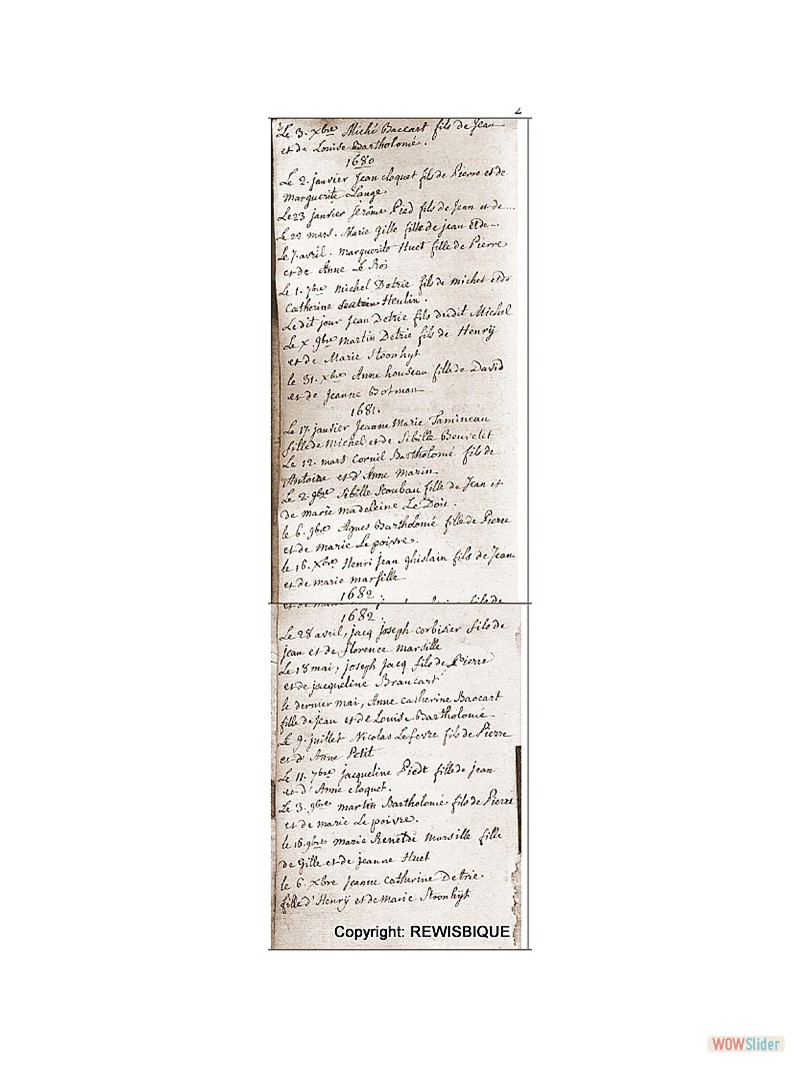 2
Le 3. xbre Michi Baccart fils de Jean
et de Louise Bartholomé.
1680
Le 2. janvier Jean cloquet fils de Pierre et de
Marguerite Lange.
Le 23 janvier jerôme Pied fils de Jean et de ....
Le 22 mars. Marie Gille fille de jean et de ...
Le 7. avril. marguerite Huet fille de Pierre
et de Anne Le Roi
Le 1. 7bre michel Detrie fils de michel et de
Catherine Heulin.
Le dit jour Jean Detrie fils du dit Michel
Le x. 9bre martin Detrie fils de Henrÿ
et de Marie Stoonhyt
le 31. xbre Anne houseau fille de David
et de Jeanne Botman
1681.
Le 17. janvier Jeanne Marie Tamineau
fille de Michel et de Sibille Beuvelet
Le 12. mars Cornil Bartholomé fils de
Antoine et d'Anne Marin
Le 2 9bre Sibille Scoubau fille de Jean et
de marie madeleine Le Dois.
le 6. 9bre Agnes Bartholomé fille de Pierre
et de marie Le poivre.
le 16. Xbre Henri Jean Ghislain fils de Jean
et de marie marsille
1682
1682.
Le 28 avril, jacq joseph corbisier fils de
jean et de florence marsille
Le 18 mai, joseph jacq fils de Pierre
et de jacqueline Brancart
le dernier mai, Anne catherine Baccart
fille de jean et de Louise Bartholomé
Le 9. juillet Nicolas Lefevre fils de Pierre
et d'Anne Petit
Le 11. 7bre jacqueline Piedt fille de jean
et d'Anne cloquet.
Le 3. 9bre martin Bartholomé fils de Pierre
et de marie Le poivre.
le 16. 9bre marie Renelde marsille fille
de Gille et de jeanne Huet
le 6. xbre jeanne catherine Detrie.
fille d'Henrÿ et de Marie Stoonhyt
Copyright: REWISBIQUE
WOWSlider